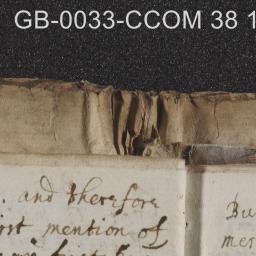 GB-0033-CCOM 38 1
. and therefore
irst mention of
Bu
mer